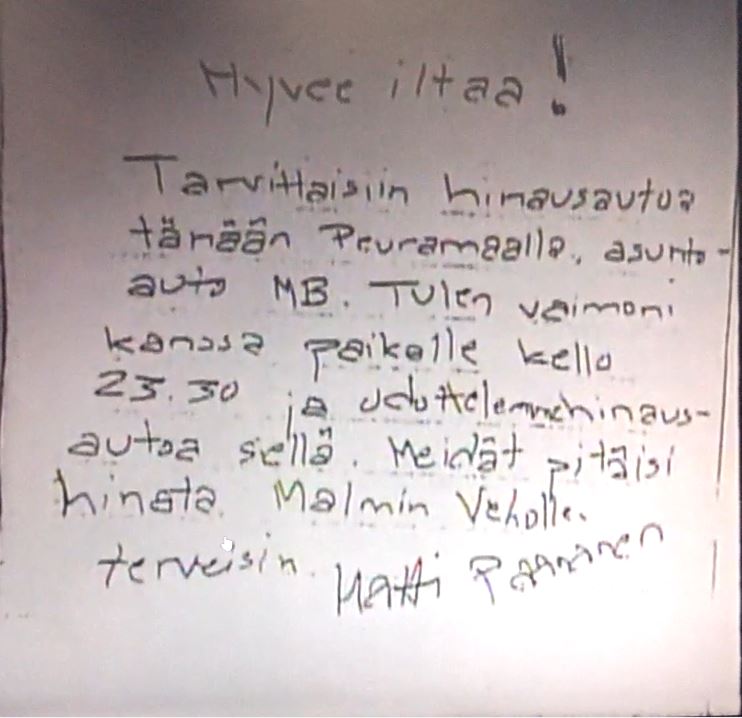 Hyvee iltaa!
Tarvittaisiin hinausautoa
tänään Peuramaalla, asunto-
auto MB. Tulen vaimoni
kanssa paikalle kello
23.30 ja odottelemme hinaus-
autoa siellä. Meidät pitäisi
hinata Malmin Veholle.
terveisin. Matti Paananen